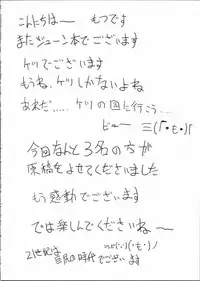 こんにちは〜 もつです
またジューン本でございます
ケツでございます
もうね、ケツしかないよね
あれだ..... ケツの国に行こう.....
ビュー 三(「・も・)「
今回なんと3名の方が
原稿をよせてくださいました
もう感動でございます
では楽しんでくださいね〜
21世紀は
の時代でございます